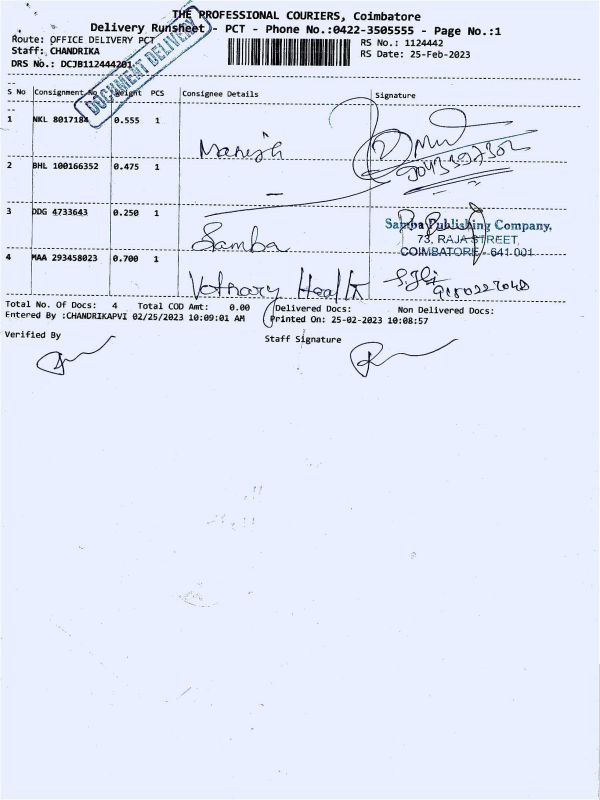 THE PROFESSIONAL COURIERS, Coimbatore
Delivery Runsheet - PCT - Phone No.:0422-3505555 - Page No.:1
Route: OFFICE DELIVERY PCT
RS No.: 1124442
Staff: CHANDRIKA
RS Date: 25-Feb-2023
DRS No.: DCJB112444201
DOCUMENT DELIVERY
S No Consignment No Weight PCS Consignee Details Signature
1 NKL 8017184 0.555 1 Manish
2 BHL 100166352 0.475 1
3 DDG 4733643 0.250 1 Samba
Samba Publishing Company,
73, RAJA STREET,
COIMBATORE - 641 001
4 MAA 293458023 0.700 1 Health
Total No. Of Docs: 4 Total COD Amt: 0.00 Delivered Docs: Non Delivered Docs:
Entered By :CHANDRIKAPVI 02/25/2023 10:09:01 AM Printed On: 25-02-2023 10:08:57
Verified By
Staff Signature